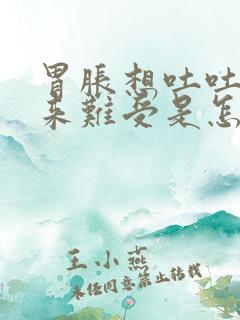 胃胀想吐吐
来难受是怎
王小燕
未经同意禁止转载